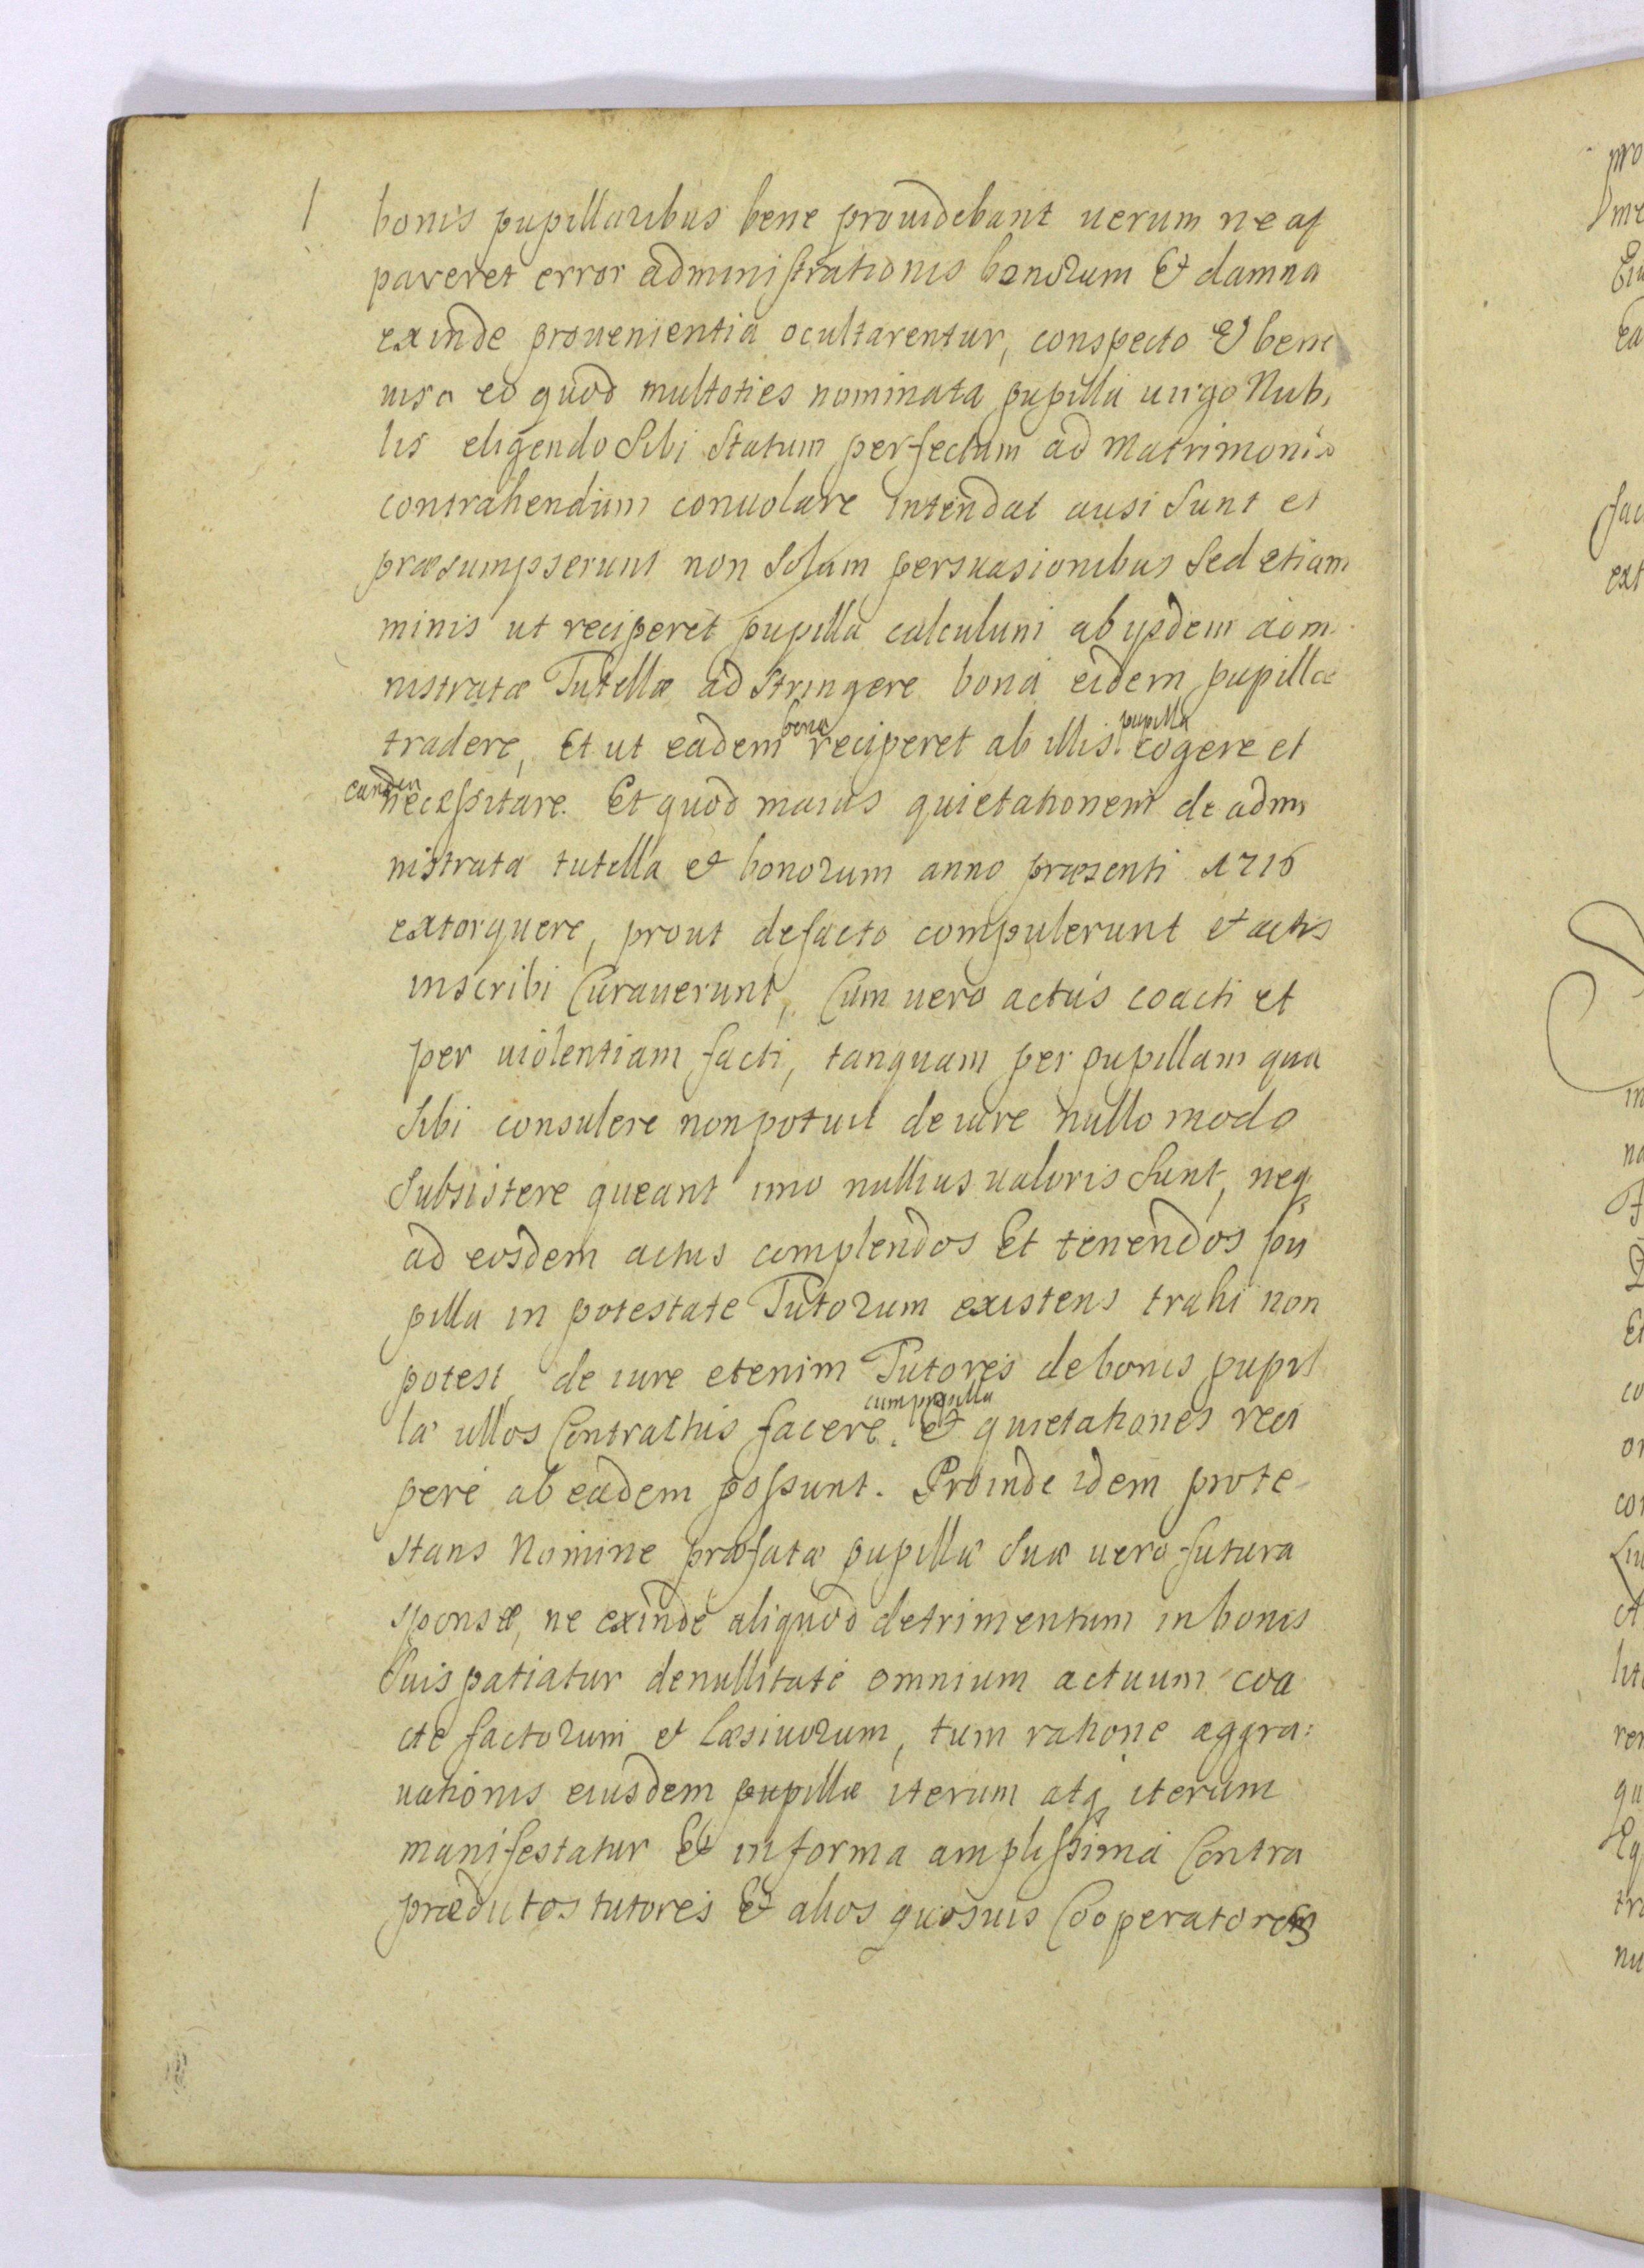 bonis pupillaribus bene prouidebant uerum ne ap
pareret error administrationis bonorum Et damna
exinde prouenientia ocultarentur, conspecto Et bene
uiso eo quod multoties nominata pupilla uirgo Nubi
lis eligendo Sibi Statum perfectum ad Matrimonio
contrahendum conuolare intendat ausi Sunt et
præsumpserunt non Solum persuasionibus Sed etiam
minis ut reciperet pupilla calculum ab ijsdem adm
nistratæ Tutellæ ad Stringere bona eidem pupillæ
bona pupilla
tradere, Et ut eadem reciperet ab illis. cogere et
eandem
necessitare. Et quod maius quietationem de admi
nistrata tutella et bonorum anno præsenti 1716
extorquere, prout defacto compulerunt et actis
inscribi Curauerunt, Cum uero actus coacti et
per uiolentiam facti, tanquam per pupillam qua
Sibi consulere non potuit de iure nullo modo
Subsistere queant imo nullius ualoris Sunt, neq
ad eosdem actus complendos Et tenendos pu
pilla in potestate Tutorum existens trahi non
potest, de iure etenim Tutores de bonis pupil
cum pupilla
læ ullos Contractus facere. et quietationes reci
pere ab eadem possunt. Proinde idem prote-
stans Nomine præfatæ pupillæ Suæ uero futura
sponsæ, ne exinde aliquod detrimentum in bonis
Suis patiatur de nullitate omnium actuum coa
cte factorum et læsiuorum, tum ratione aggra:
uationis eiusdem pupillæ iterum atq iterum
manifestatur Et in forma amplissima Contra
prædictos tutores Et alios quosuis Cooperatores